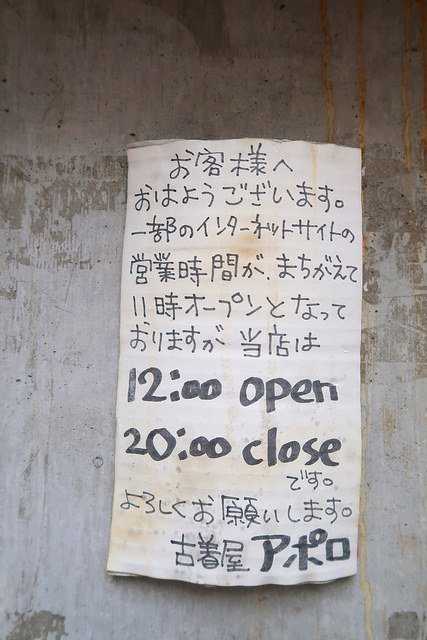 お客様へ
おはようございます。
一部のインターネットサイトの
営業時間が、まちがえて
11時オープンとなって
おりますが 当店は
12:00 open
20:00 close
です。
よろしくお願いします。
古着屋 アポロ